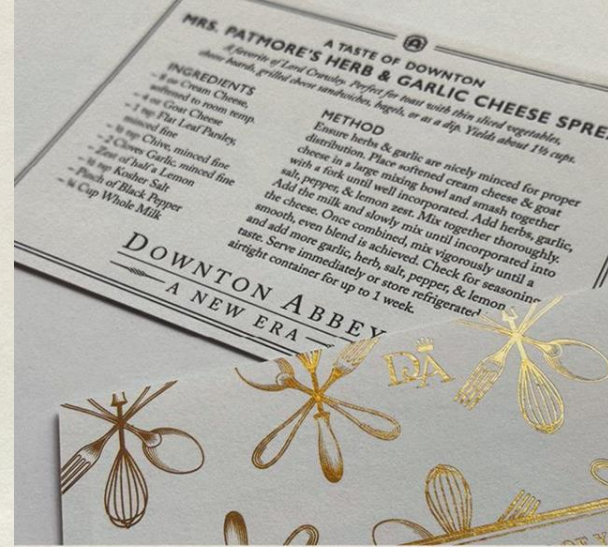 A TASTE OF DOWNTON
MRS. PATMORE'S HERB & GARLIC CHEESE SPRE
A favorite of Lord Crawley. Perfect for toast with thin sliced vegetables,
cheese boards, grilled cheese sandwiches, bagels, or as a dip. Yields about 1½ cups.
INGREDIENTS
- 8 oz Cream Cheese,
softened to room temp.
- 4 oz Goat Cheese
- 1 tsp Flat Leaf Parsley,
minced fine
- ½ tsp Chive, minced fine
- 2 Cloves Garlic, minced fine
- Zest of half a Lemon
- ½ tsp Kosher Salt
- Pinch of Black Pepper
- ¼ Cup Whole Milk
METHOD
Ensure herbs & garlic are nicely minced for proper
distribution. Place softened cream cheese & goat
cheese in a large mixing bowl and smash together
with a fork until well incorporated. Add herbs, garlic,
salt, pepper, & lemon zest. Mix together thoroughly.
Add the milk and slowly mix until incorporated into
the cheese. Once combined, mix vigorously until a
smooth, even blend is achieved. Check for seasoning
and add more garlic, herb, salt, pepper, & lemon
taste. Serve immediately or store refrigerated
airtight container for up to 1 week.
DOWNTON ABBEY
A NEW ERA
DA